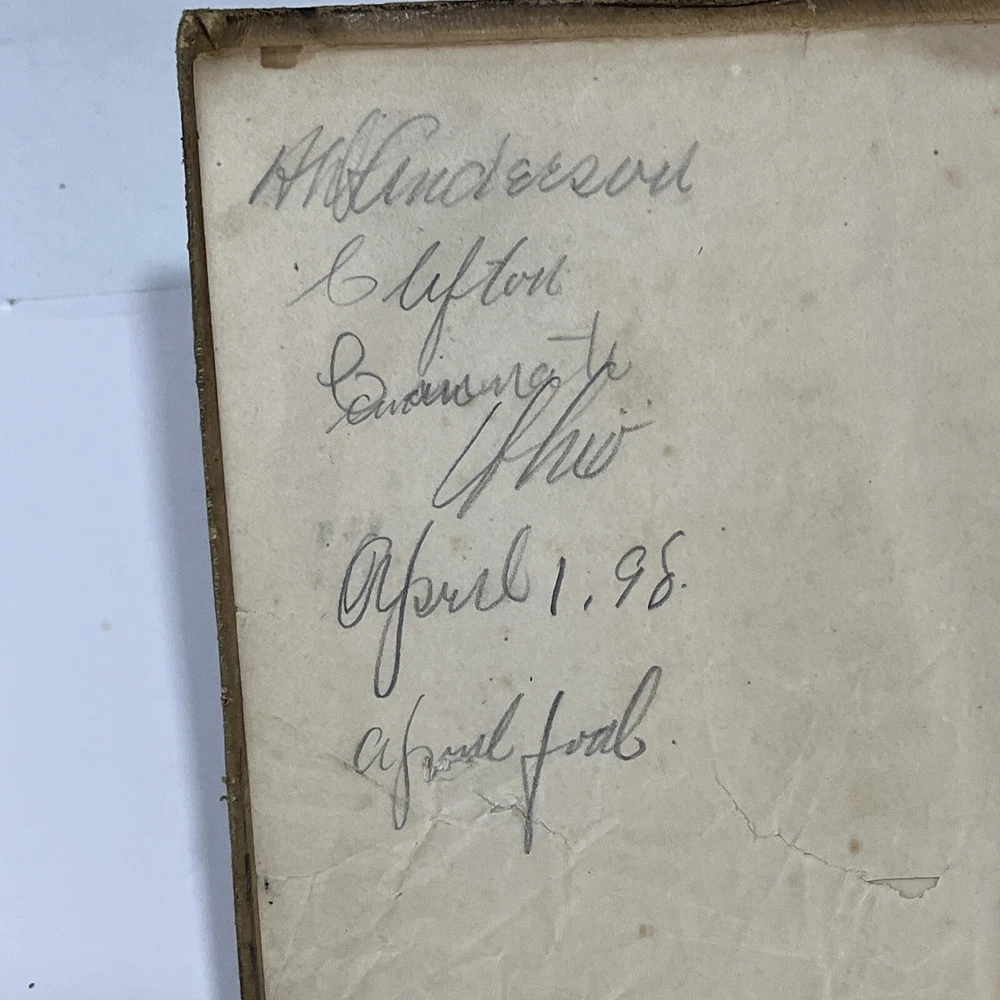 Anderson
Clifton
Cincinnati
Ohio
April 1. 98.
april fool